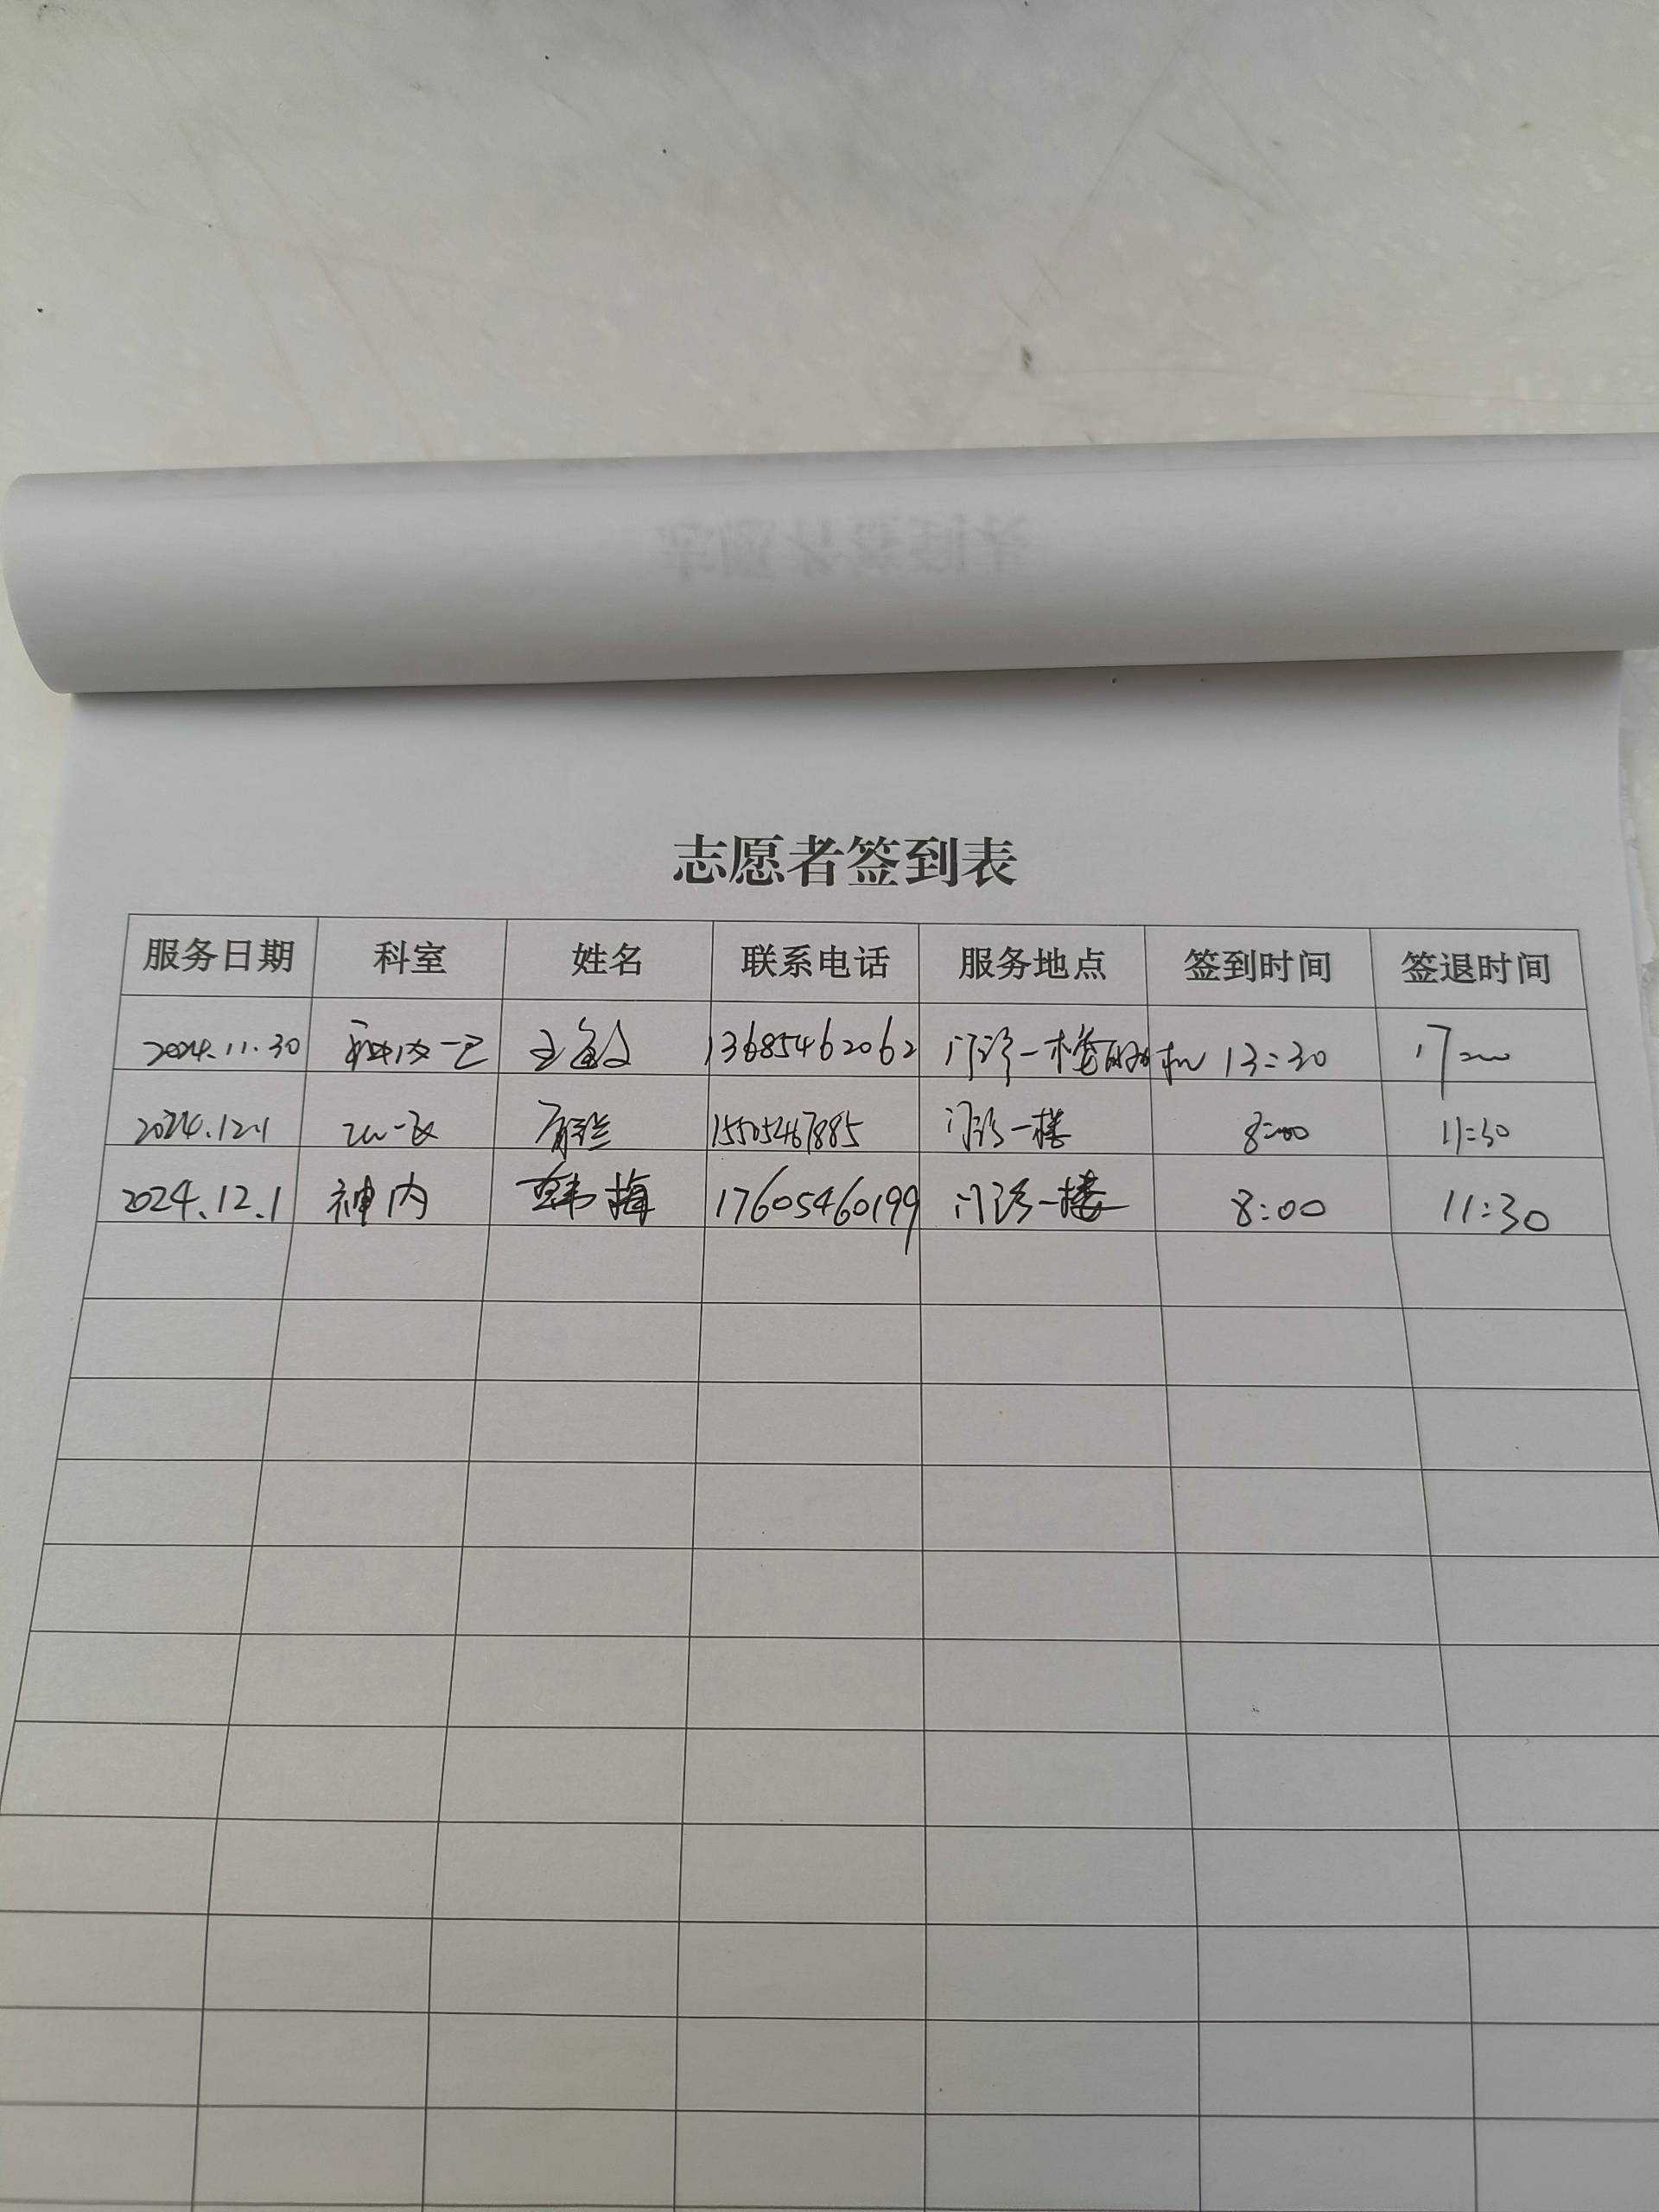 志愿者签到表
服务日期 科室 姓名 联系电话 服务地点 签到时间 签退时间
2024.11.30 13685462062 门诊一楼 13:30 17:00
2024.12.1 15505467885 门诊一楼 8:00 11:30
2024.12.1 神内 韩梅 17605460199 门诊一楼 8:00 11:30